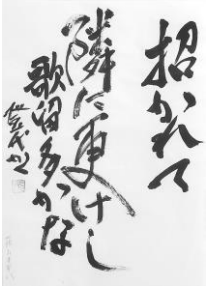 招かれて
隣に更けし
歌留多かな